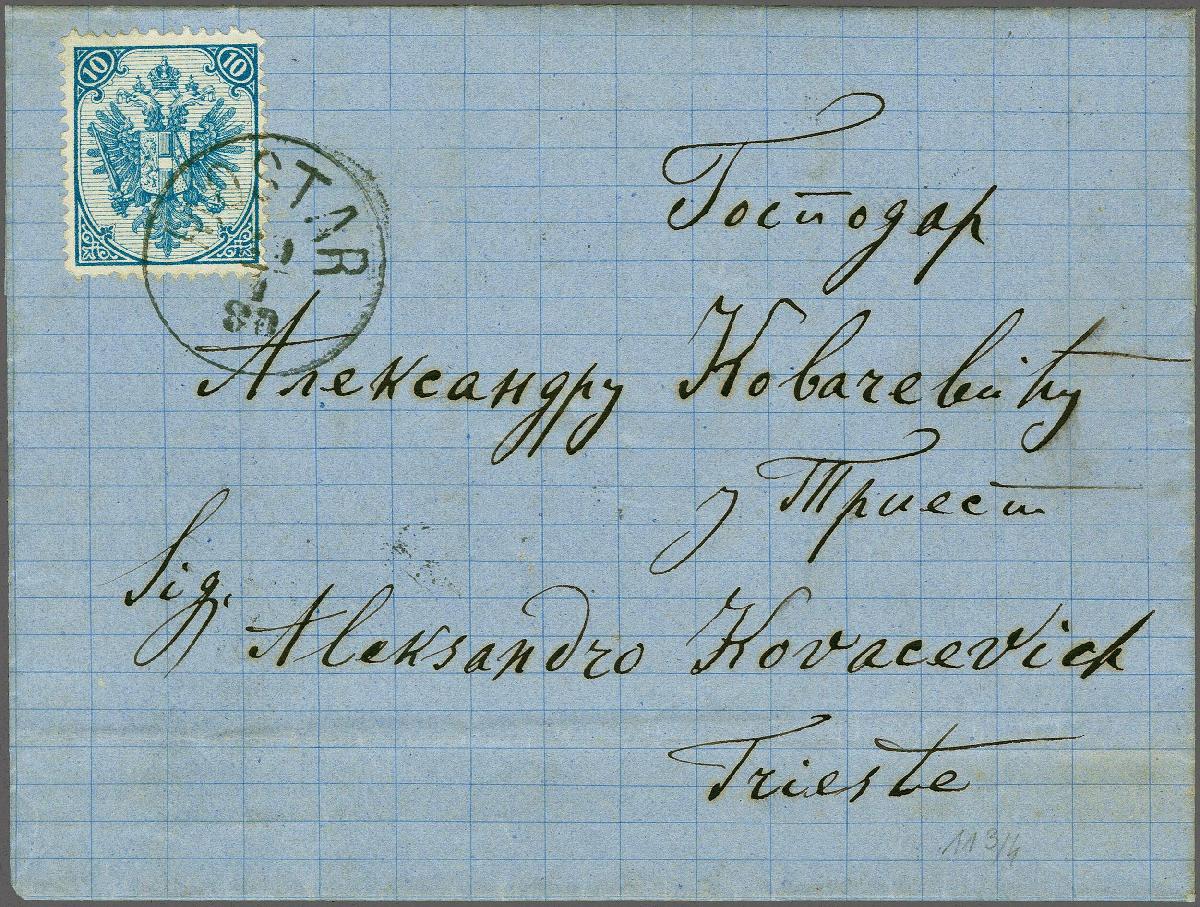 10 10
MOSTAR
Господар
Александру Ковачевићу
у Триест
Sig.
Aleksandro Kovacevich
Trieste
11 3/4